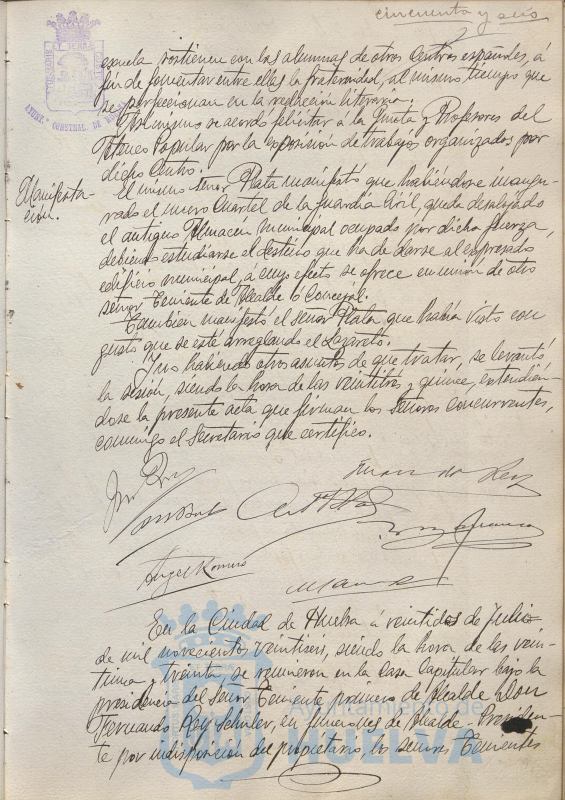 cincuenta y seis
escuela sostienen con las alumnas de otros Centros españoles, á
fin de fomentar entre ellas la fraternidad, al mismo tiempo que
se perfeccionan en la redacción literaria.
Asimismo se acordó felicitar á la Junta y Profesores del
Ateneo Popular por la exposición de trabajos organizados por
dicho Centro.
Manifesta-
ción.
El mismo señor Plata manifestó que habiéndose inaugu-
rado el nuevo Cuartel de la Guardia Civil, queda desalojado
el antiguo Almacén Municipal ocupado por dicha fuerza,
debiendo estudiarse el destino que ha de darse al expresado
edificio municipal, á cuyo efecto se ofrece en unión de otro
señor Teniente de Alcalde ó Concejal.
También manifestó el señor Plata que había visto con
gusto que se esté arreglando el Lazareto.
Y no habiendo otros asuntos de que tratar, se levantó
la sesión, siendo la hora de las veintitrés y quince, extendién
dose la presente acta que firman los señores concurrentes,
conmigo el Secretario que certifico.
Angel Romero
En la Ciudad de Huelva á veintidós de Julio
de mil novecientos veintiseis, siendo la hora de las vein-
tiuna y treinta, se reunieron en la Casa Capitular bajo la
presidencia del Señor Teniente primero de Alcalde Don
Fernando Rey Schuler, en funciones de Alcalde-Presiden-
te por indisposición del propietario, los señores Tenientes
Ayuntamiento de
HUELVA